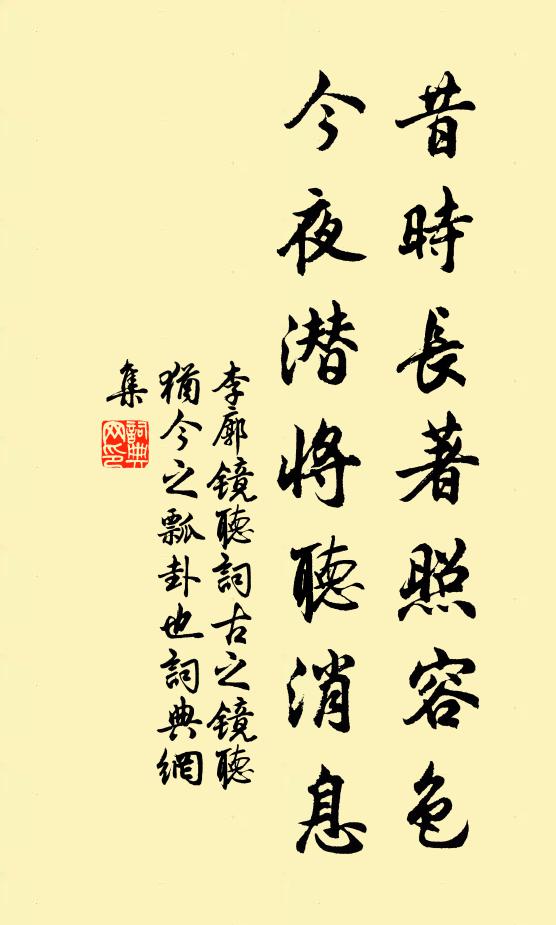 昔時長著照容色
今夜潛將聽消息
李廓镜聽詞古之镜聽
猶今之瓢卦也詞典網
集
詞典
网印